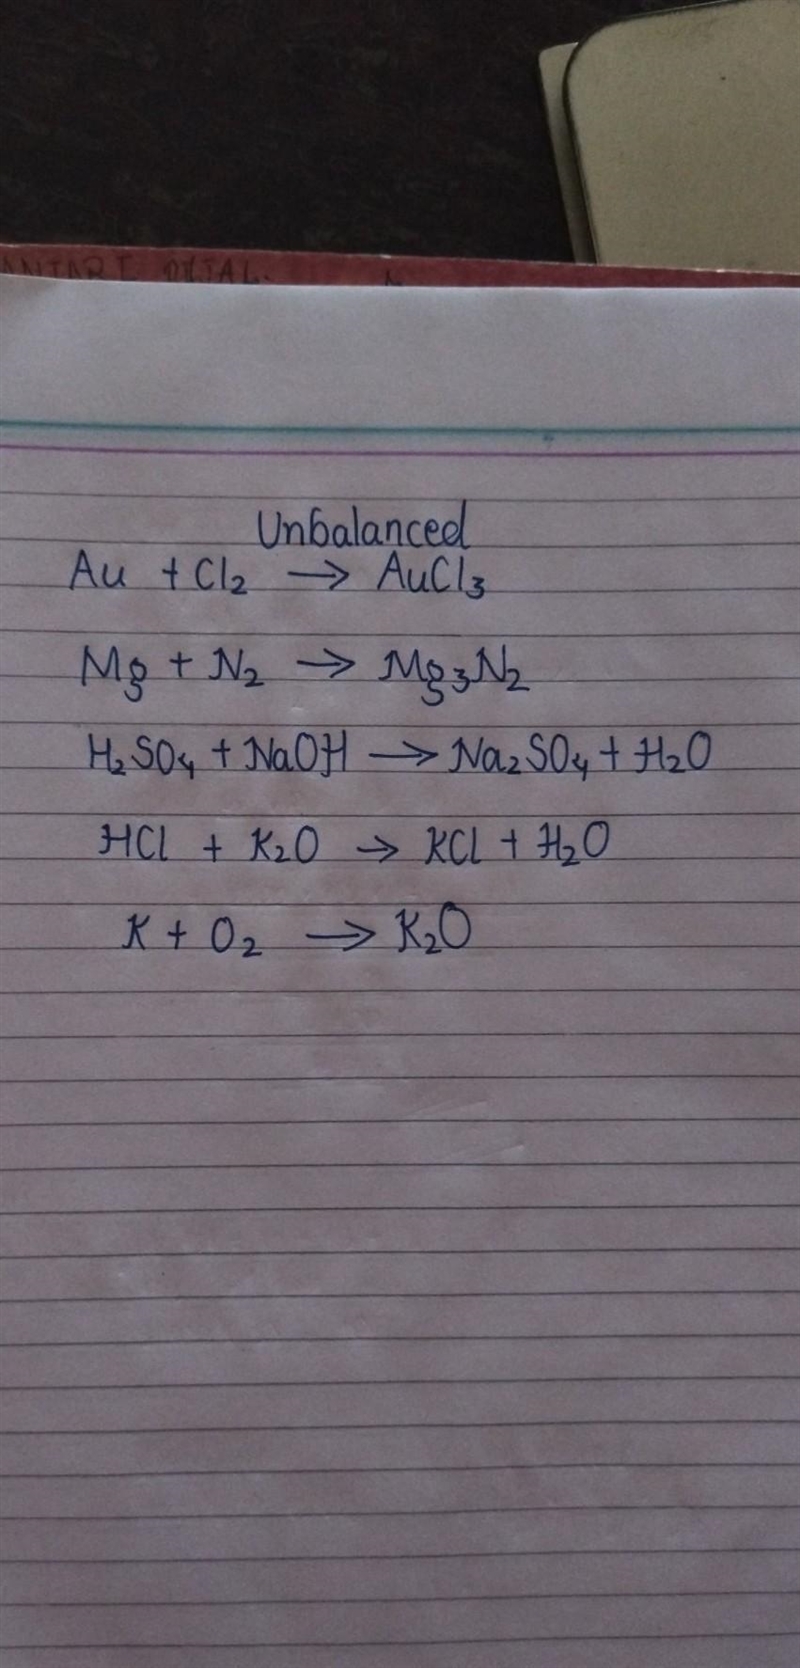 Unbalanced
Au + Cl₂ → AuCl₃
Mg + N₂ → Mg₃N₂
H₂SO₄ + NaOH → Na₂SO₄ + H₂O
HCl + K₂O → KCl + H₂O
K + O₂ → K₂O